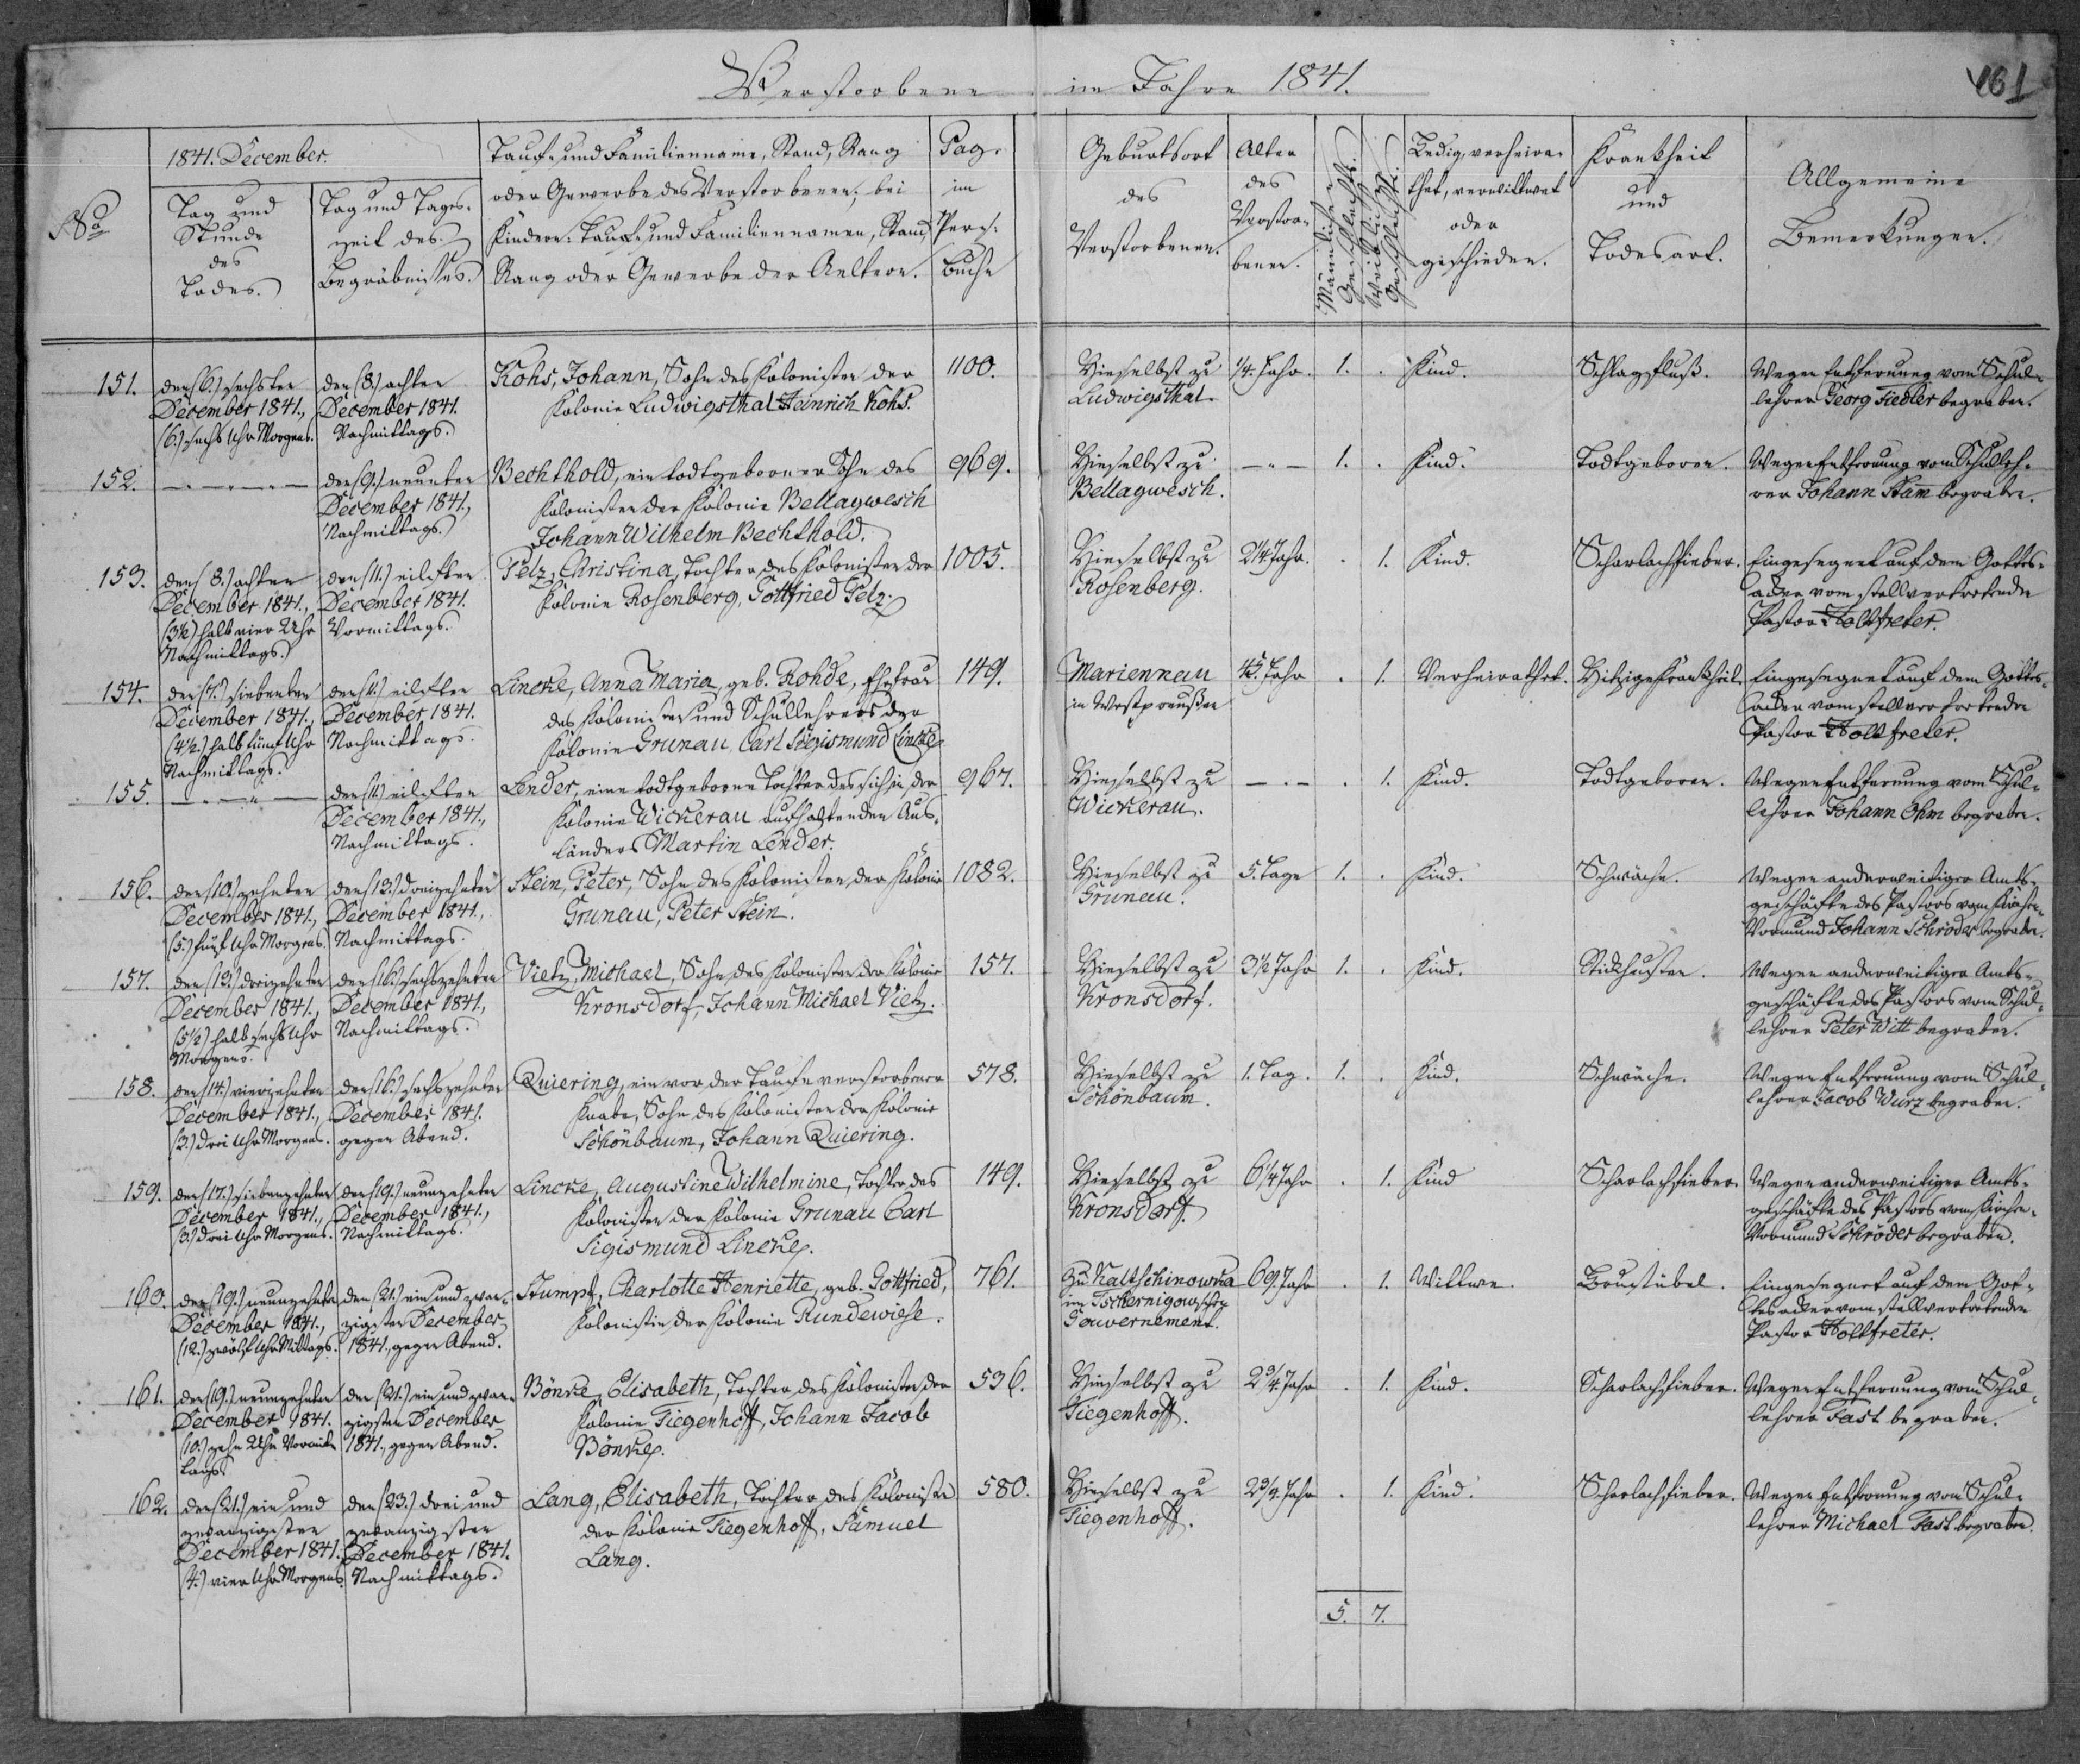 Verstorbene im Jahre 1841.
161
No
1841. December.
Tag und
Stunde
des
Todes.
Tag und Tages-
zeit des
Begräbnisses.
Tauf- und Familienname, Stand, Rang
oder Gewerbe des Verstorbenen; bei
Kindern: Tauf- und Familiennamen, Stand,
Rang oder Gewerbe der Aeltern.
Pag.
im
Pers:
Buche
Geburtsort
des
Verstorbenen.
Alter
des
Verstor-
benen.
Männlichen
Geschlechts.
Weiblichen
Geschlechts.
Ledig, verheira-
thet, verwittwet
oder
geschieden.
Krankheit
und
Todesart.
Allgemeine
Bemerkungen.
151.
den (6.) sechsten
December 1841.,
(6.) sechs Uhr Morgens.
den (8.) achten
December 1841.
Nachmittags.
Kohs, Johann, Sohn des Kolonisten der
Kolonie Ludwigsthal Heinrich Kohs.
1100.
Hieselbst zu
Ludwigsthal.
1/4. Jahr.
1. .
Kind.
Schlagfluß.
Wegen Entfernung vom Schul-
lehrer Georg Fiedler begraben.
152.
den (9.) neunten
December 1841.,
Nachmittags.
Bechthold, ein todtgeborner Sohn des
Kolonisten der Kolonie Bellagwesch
Johann Wilhelm Bechthold.
969.
Hieselbst zu
Bellagwesch.
— " —
1. .
Kind.
Todtgeboren.
Wegen Entfernung vom Schulleh-
rer Johann Stam̄ begraben.
153.
den (8.) achten
December 1841.,
(3½) halb vier Uhr
Nachmittags.
den (11.) eilften
December 1841.
Vormittags.
Pelz, Christina, Tochter des Kolonisten der
Kolonie Rosenberg, Gottfried Pelz.
1005.
Hieselbst zu
Rosenberg.
2¼ Jahr.
. 1.
Kind.
Scharlachfieber.
Eingesegnet auf dem Gottes-
acker vom stellvertretenden
Pastor Holtfreter.
154.
den (7.) siebenten
December 1841.,
(4½.) halb fünf Uhr
Nachmittags.
den (11.) eilften
December 1841.
Nachmittags.
Lincke, Anna Maria, geb. Rohde, Ehefrau
des Kolonisten und Schullehrers der
Kolonie Grunau, Carl Sigismund Lincke.
149.
Mariennau
in Westpreußen
45. Jahr
. 1.
Verheirathet.
Hitzige Krankheit.
Eingesegnet auf dem Gottes-
acker vom stellvertretenden
Pastor Holtfreter.
155.
den (11.) eilften
December 1841.,
Nachmittags.
Lender, eine todtgeborne Tochter des sich in der
Kolonie Wickerau aufhaltenden Aus-
länders Martin Lender.
967.
Hieselbst zu
Wickerau.
— . —
. 1.
Kind.
Todtgeboren.
Wegen Entfernung vom Schul-
lehrer Johann Ohm begraben.
156.
den (10.) zehnten
December 1841.,
(5.) fünf Uhr Morgens.
den (13.) dreizehnten
December 1841.,
Nachmittags.
Stein, Peter, Sohn des Kolonisten der Kolonie
Grunau, Peter Stein.
1082.
Hieselbst zu
Grunau.
5. Tage
1. .
Kind.
Schwäche.
Wegen anderweitiger Amts-
geschäfte des Pastors vom Kirchen-
Vormund Johann Schröder begraben.
157.
den (13.) dreizehnten
December 1841.,
(5½) halb sechs Uhr
Morgens.
den (16.) sechszehnten
December 1841.,
Nachmittags.
Vietz, Michael, Sohn des Kolonisten der Kolonie
Kronsdorf, Johann Michael Vietz.
157.
Hieselbst zu
Kronsdorf.
3½ Jahr
1. .
Kind.
Stickhusten.
Wegen anderweitiger Amts-
geschäfte des Pastors vom Schul-
lehrer Peter Witt begraben.
158.
den (14.) vierzehnten
December 1841.,
(3.) drei Uhr Morgens.
den (16.) sechszehnten
December 1841.
gegen Abend.
Quiering, ein vor der Taufe verstorbener
Knabe, Sohn des Kolonisten der Kolonie
Schönbaum, Johann Quiering.
578.
Hieselbst zu
Schönbaum.
1. Tag.
1. .
Kind.
Schwäche.
Wegen Entfernung vom Schul-
lehrer Jacob Wurz begraben.
159.
den (17.) siebenzehnten
December 1841.,
(3.) drei Uhr Morgens.
den (19.) neunzehnten
December 1841.,
Nachmittags.
Lincke, Augustine Wilhelmine, Tochter des
Kolonisten der Kolonie Grunau Carl
Sigismund Lincke.
149.
Hieselbst zu
Kronsdorf.
6¼ Jahr
. 1.
Kind
Scharlachfieber.
Wegen anderweitiger Amts-
geschäfte des Pastors vom Kirchen-
Vormund Schröder begraben.
160.
den (19.) neunzehnten
December 1841.,
(12.) zwölf Uhr Mittags.
den (21.) ein und zwan-
zigsten December
1841., gegen Abend.
Stumpf, Charlotte Henriette, geb. Gottfried,
Kolonistin der Kolonie Rundewiese.
761.
Zu Kaltschinowka
im Tschernigowschen
Gouvernement.
69. Jahr
. 1.
Wittwe.
Brustübel.
Eingesegnet auf dem Got-
tesacker vom stellvertretenden
Pastor Holtfreter.
161.
den (19.) neunzehnten
December 1841.
(10.) zehn Uhr Vormit-
tags
den (21.) ein und zwan-
zigsten December
1841., gegen Abend.
Bönke, Elisabeth, Tochter des Kolonisten der
Kolonie Tiegenhoff, Johann Jacob
Bönke.
536.
Hieselbst zu
Tiegenhoff.
2¾ Jahr
. 1.
Kind.
Scharlachfieber.
Wegen Entfernung vom Schul-
lehrer Fast begraben.
162.
den (21.) ein und
zwanzigsten
December 1841.
(4.) vier Uhr Morgens.
den (23.) drei und
zwanzigsten
December 1841.
Nachmittags.
Lang, Elisabeth, Tochter des Kolonisten
der Kolonie Tiegenhoff, Samuel
Lang.
580.
Hieselbst zu
Tiegenhoff.
2¾. Jahr
. 1.
Kind.
Scharlachfieber.
Wegen Entfernung vom Schul-
lehrer Michael Fast begraben.
5. 7.